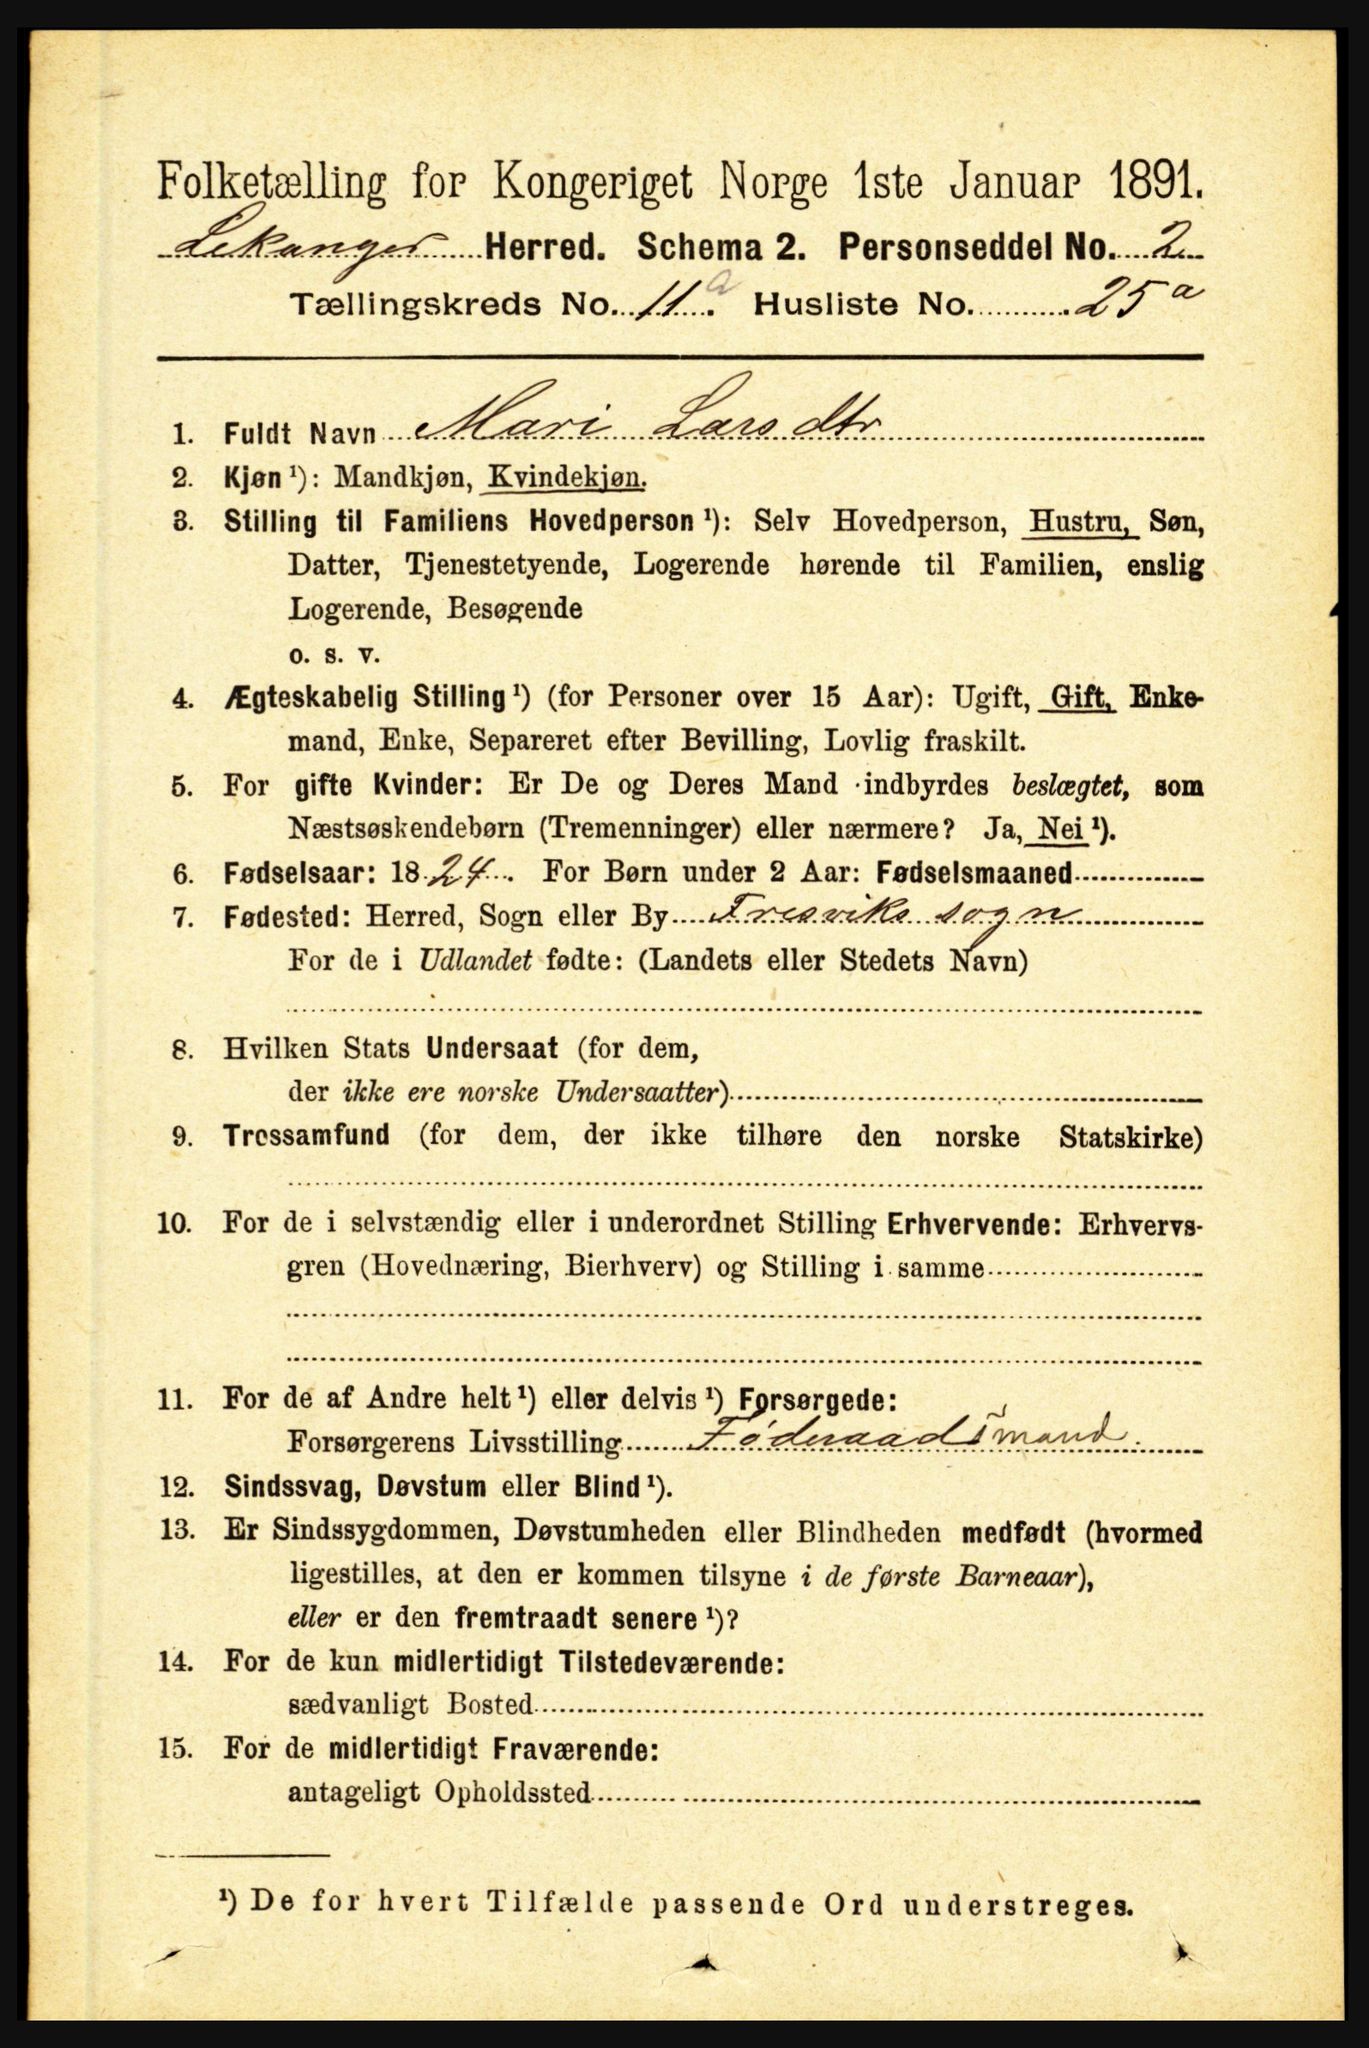 Folketælling for Kongeriget Norge 1ste Januar 1891.
Lekanger Herred. Schema 2. Personseddel No. 2
Tællingskreds No. 11 a. Husliste No. 25 a
1. Fuldt Navn Mari Larsdtr
2. Kjøn ¹): Mandkjøn, Kvindekjøn.
3. Stilling til Familiens Hovedperson ¹): Selv Hovedperson, Hustru, Søn,
Datter, Tjenestetyende, Logerende hørende til Familien, enslig
Logerende, Besøgende
o. s. v.
4. Ægteskabelig Stilling ¹) (for Personer over 15 Aar): Ugift, Gift, Enke-
mand, Enke, Separeret efter Bevilling, Lovlig fraskilt.
5. For gifte Kvinder: Er De og Deres Mand indbyrdes beslægtet, som
Næstsøskendebørn (Tremenninger) eller nærmere? Ja, Nei ¹).
6. Fødselsaar: 1824. For Børn under 2 Aar: Fødselsmaaned
7. Fødested: Herred, Sogn eller By Fresviks sogn
For de i Udlandet fødte: (Landets eller Stedets Navn)
8. Hvilken Stats Undersaat (for dem,
der ikke ere norske Undersaatter)
9. Trossamfund (for dem, der ikke tilhøre den norske Statskirke)
10. For de i selvstændig eller i underordnet Stilling Erhvervende: Erhvervs-
gren (Hovednæring, Bierhverv) og Stilling i samme
11. For de af Andre helt ¹) eller delvis ¹) Forsørgede:
Forsørgerens Livsstilling Føderaadsmand.
12. Sindssvag, Døvstum eller Blind ¹).
13. Er Sindssygdommen, Døvstumheden eller Blindheden medfødt (hvormed
ligestilles, at den er kommen tilsyne i de første Barneaar),
eller er den fremtraadt senere ¹)?
14. For de kun midlertidigt Tilstedeværende:
sædvanligt Bosted
15. For de midlertidigt Fraværende:
antageligt Opholdssted
¹) De for hvert Tilfælde passende Ord understreges.